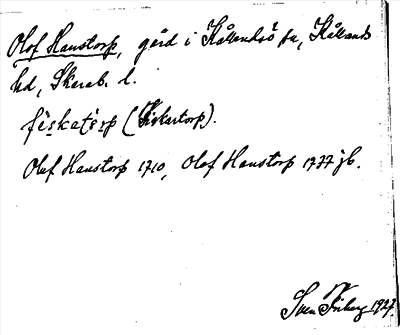 Olof Hanstorp, gård i Kållandsö sn, Kållands
hd, Skarab. l.
fiskatårp (Fiskartorp).
Oluf Hanstorp 1710, Olof Hanstorp 1777 jb.
Sven Friberg 1927.